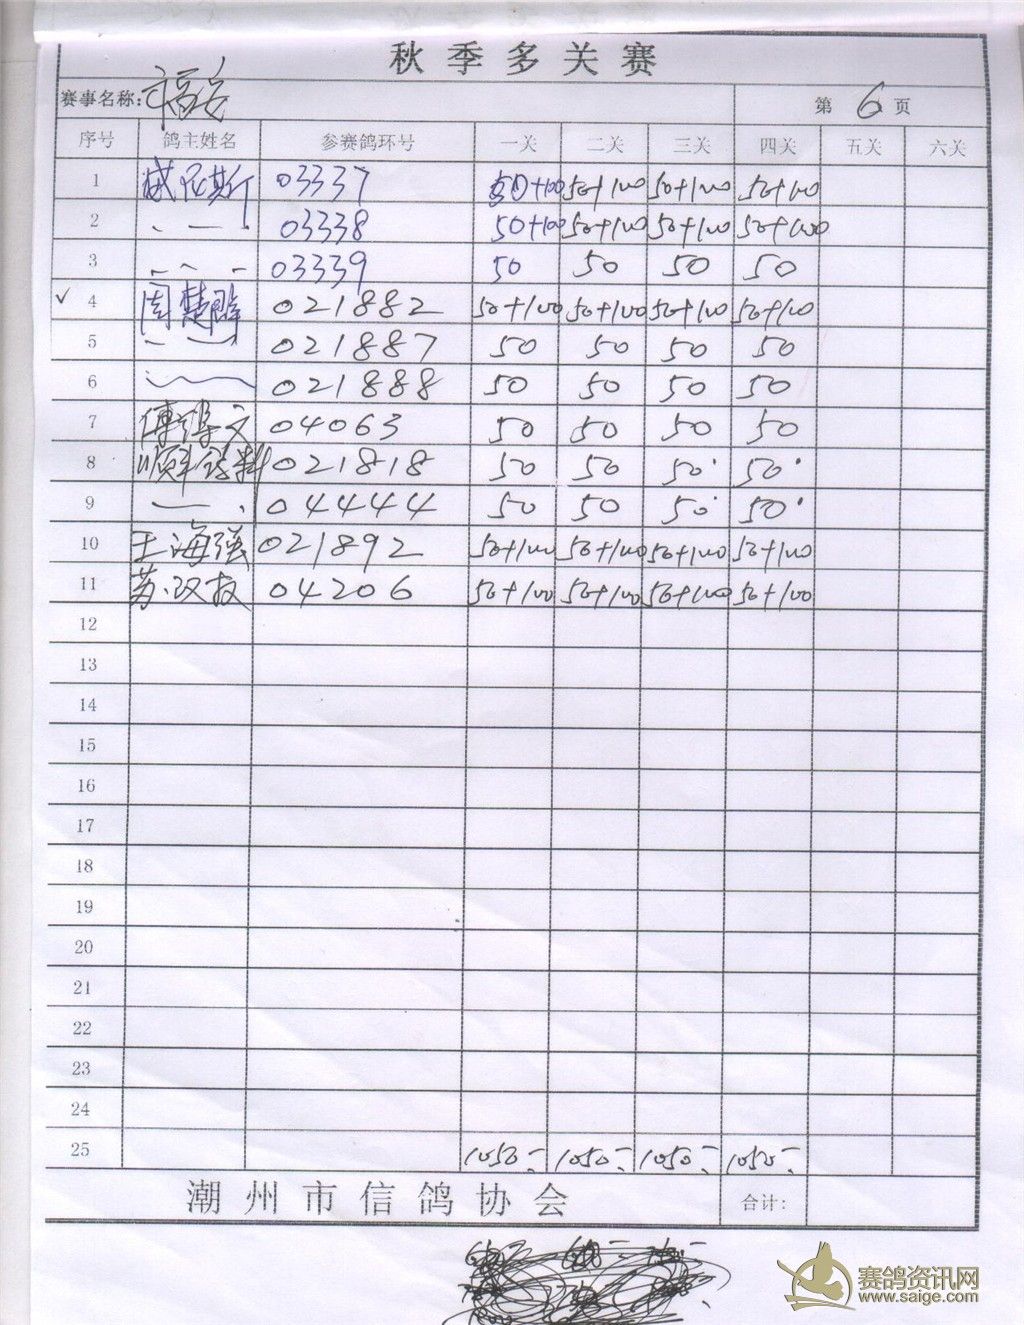 秋季多关赛
赛事名称: 福安 第 6 页
序号 鸽主姓名 参赛鸽环号 一关 二关 三关 四关 五关 六关
1 威尼斯 03337 50+100 50+100 50+100 50+100
2 03338 50+100 50+100 50+100 50+100
3 03339 50 50 50 50
✓ 4 周楚鹏 021882 50+100 50+100 50+100 50+100
5 021887 50 50 50 50
6 021888 50 50 50 50
7 文 04063 50 50 50 50
8 021818 50 50 50 50
9 04444 50 50 50 50
10 王海强 021892 50+100 50+100 50+100 50+100
11 苏双技 04206 50+100 50+100 50+100 50+100
12
13
14
15
16
17
18
19
20
21
22
23
24
25 1050 1050 1050 1050
潮州市信鸽协会 合计:
赛鸽资讯网
www.saige.com